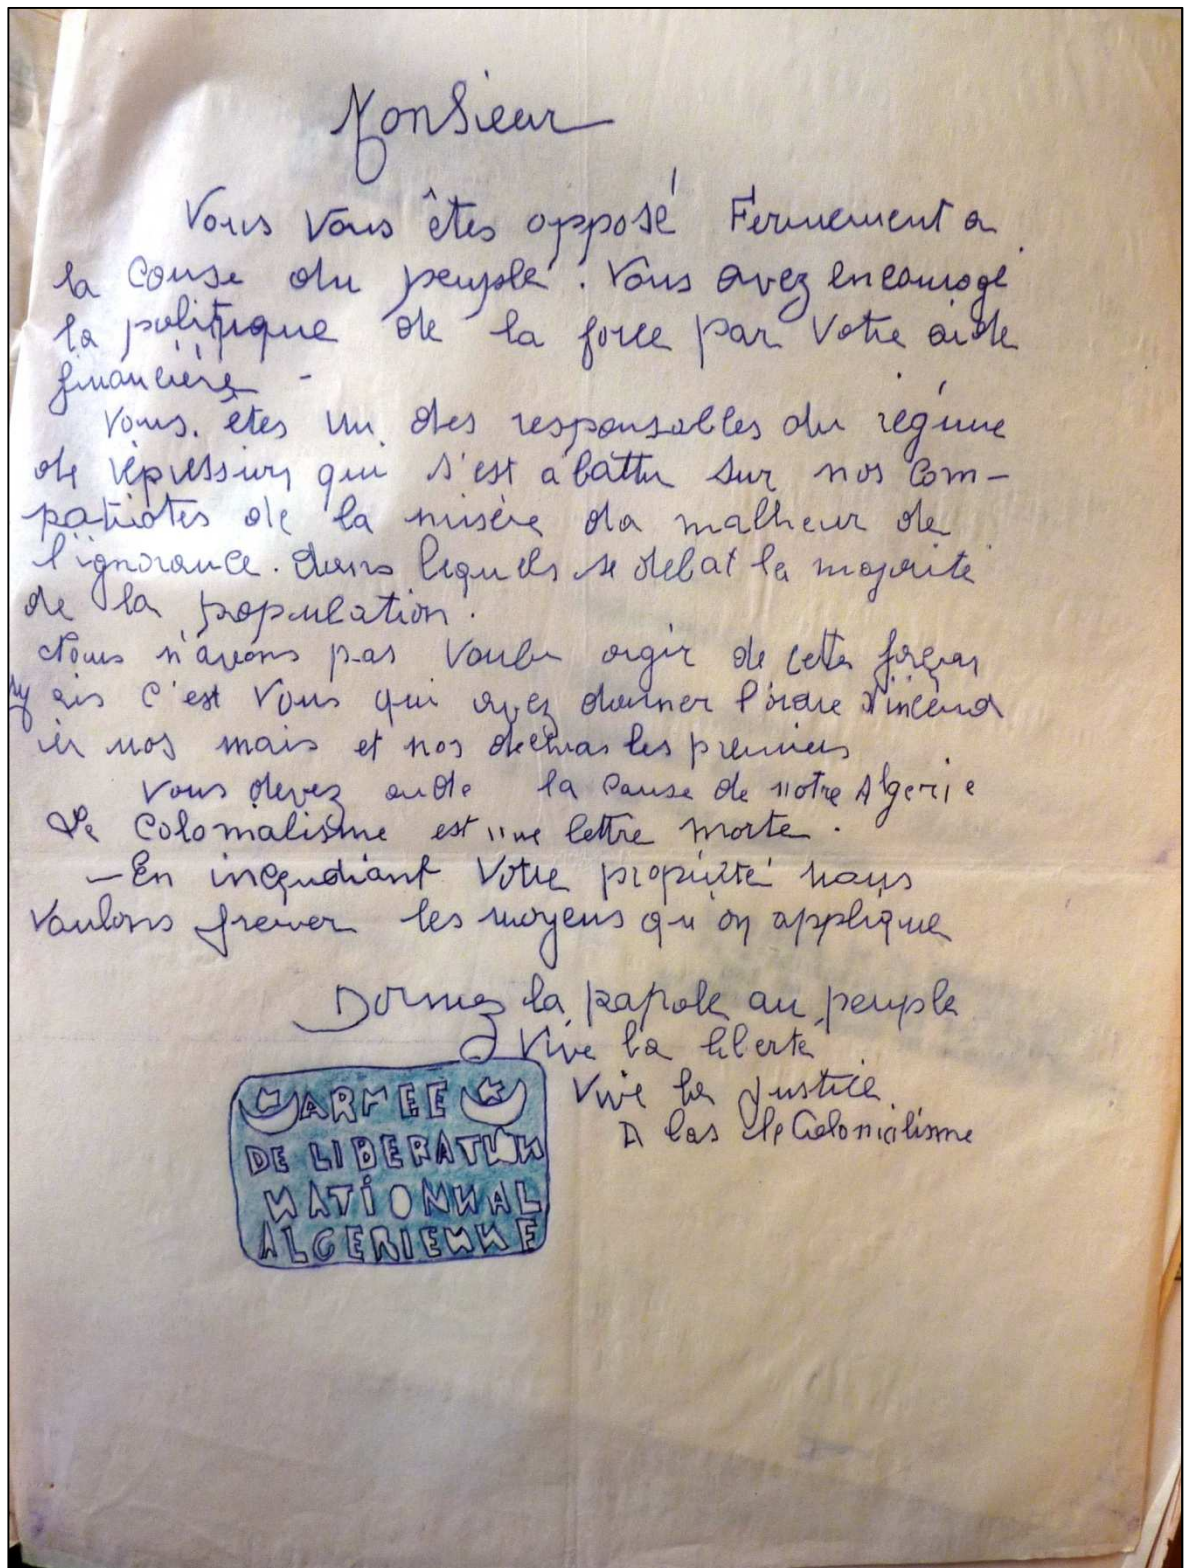 Monsieur
Vous Vous êtes opposé Fermement a
la Cause du peuple. Vous avez encouragé
la politique de la force par Votre aide
financière -
Vous êtes un des responsables du régime
de répression qui s'est abattu sur nos Com-
patriotes de la misère du malheur de
l'ignorance. dans lequels se debat la majorité
de la population.
Nous n'avons pas Voulu agir de cette façon
Mais C'est Vous qui avez donner l'ordre d'incend
ier nos mais et nos les premiers
Vous devez aide la Cause de notre Algérie
Le Colonialisme est une lettre morte.
- En inçendiant Votre propriété nous
Voulons freiner les moyens qu'on applique
Donnez la parole au peuple
Vive la liberte
Vive la Justice
A bas le Colonialisme
ARMEE
DE LIBERATION
NATIONNAL
ALGERIENNE